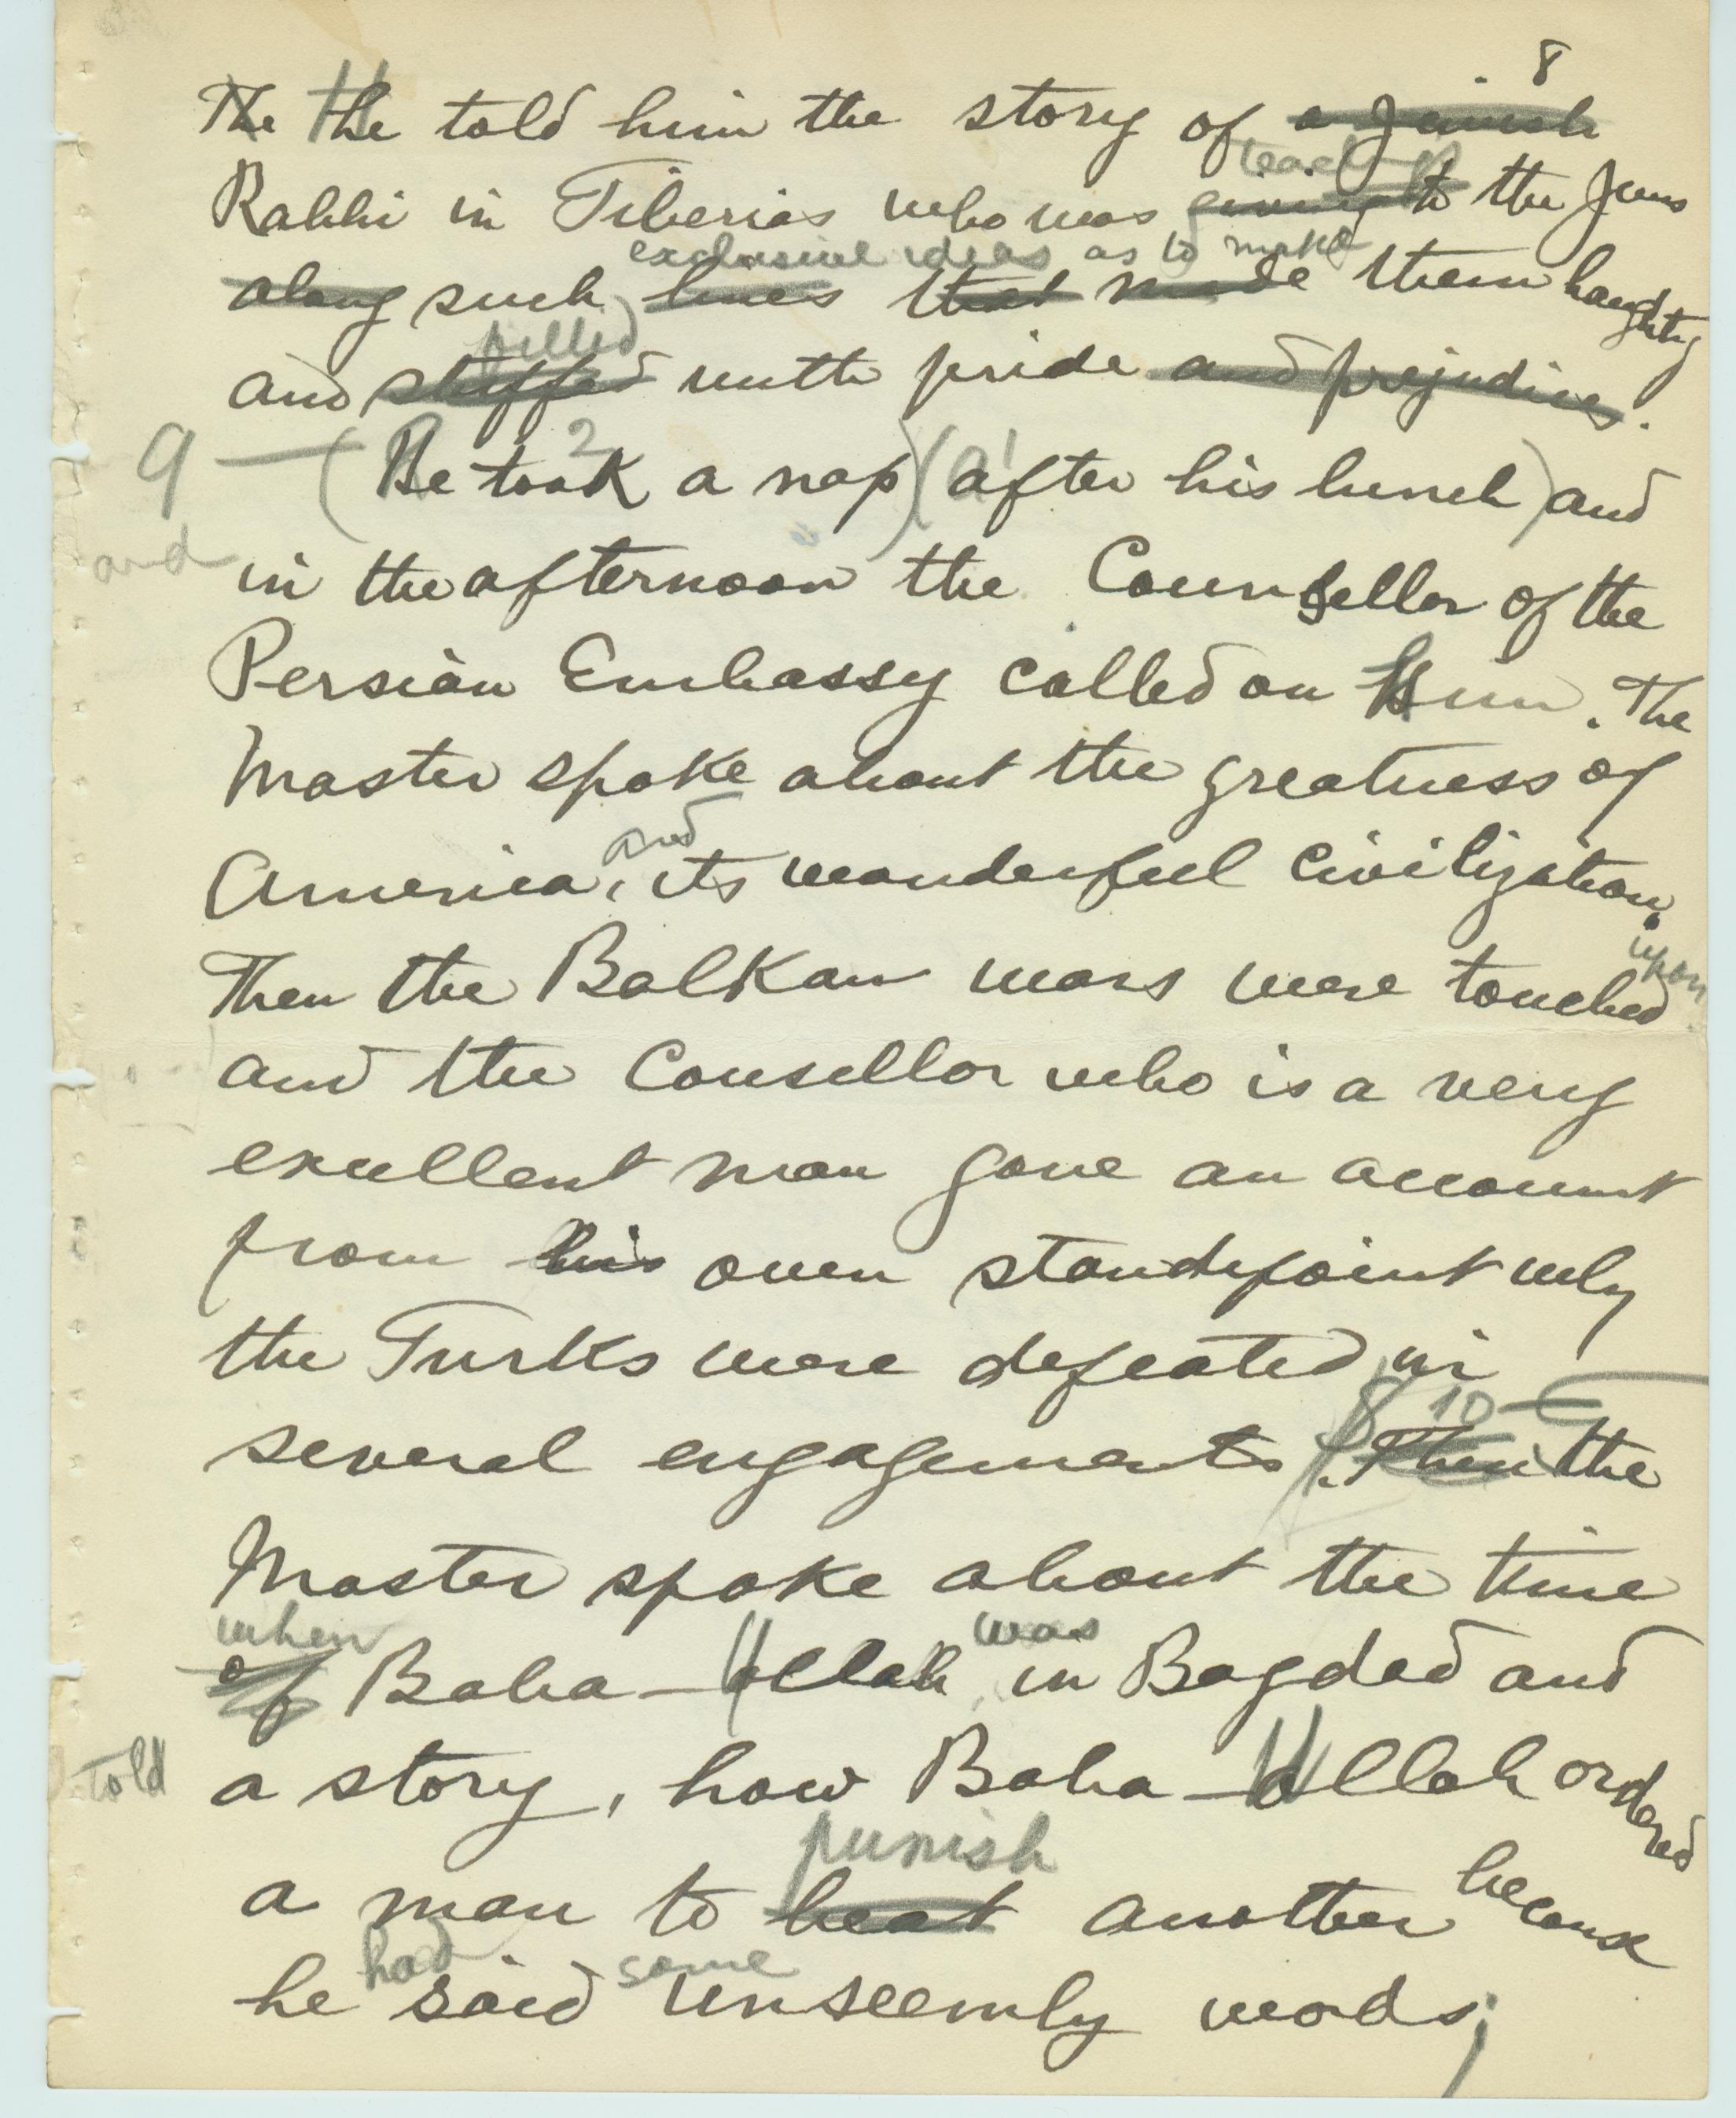 8
The He told him the story of a Jewish
teach
Rabbi in Tiberias who was giving to the Jews
exclusive ideas as to make
along such lines that made them haughty
filled
and stuffed with pride and prejudice.
9 — (He took 2 a nap) (1 after his lunch) and
and in the afternoon the Counsellor of the
Persian Embassy called on Him. The
Master spoke about the greatness of
and
America, its wonderful civilization.
upon
Then the Balkan wars were touched
and the Consellor who is a very
excellent man gave an account
from his own standpoint why
the Turks were defeated in
10
several engagements. Then the
Master spoke about the time
when was
of Baha-Ullah in Bagdad and
told a story, how Baha-Ullah ordered
punish
a man to beat another because
had some
he said unseemly words;